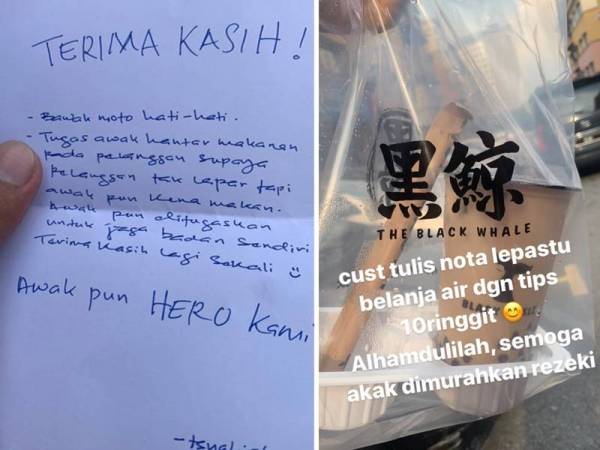 TERIMA KASIH!
- Bawak moto hati-hati.
- Tugas awak hantar makanan
pada pelanggan supaya
pelanggan tak lapar tapi
awak pun kena makan.
Awak pun ditugaskan
untuk jaga badan sendiri
Terima Kasih lagi sekali ☺
Awak pun HERO Kami
黑鯨
THE BLACK WHALE
cust tulis nota lepastu
belanja air dgn tips
10ringgit 😊
Alhamdulilah, semoga
akak dimurahkan rezeki